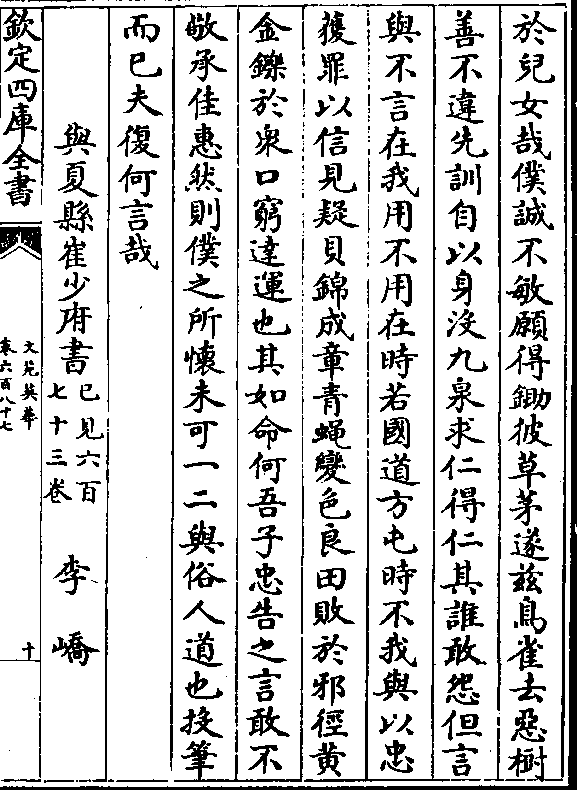 於兒女哉僕誠不敏願得鋤彼草茅遂兹鳥雀去惡樹
善不違先訓自以身没九泉求仁得仁其誰敢怨但言
與不言在我用不用在時若國道方屯時不我與以忠
獲罪以信見疑貝錦成章青蝿變色良田敗於邪徑黄
金鑠於衆口窮達運也其如命何吾子忠告之言敢不
敬承佳惠然則僕之所懷未可一二與俗人道也投筆
而已夫復何言哉
與夏縣崔少府書 已見六百七十三卷 李嶠
欽定四庫全書
文苑英華
卷六百八十七
十